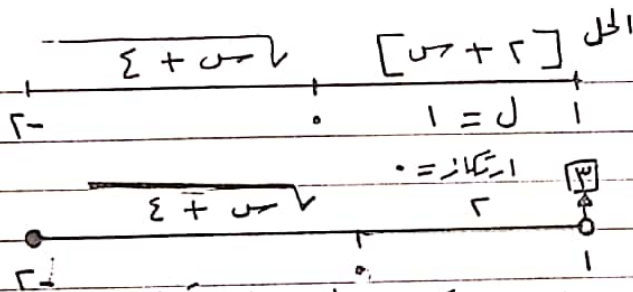 الحل
[٢ + س] √س + ٤
١ ل = ١ ٠ -٢
٣ ارتكاز = ٠
٢ √س + ٤
١ ٠ -٢